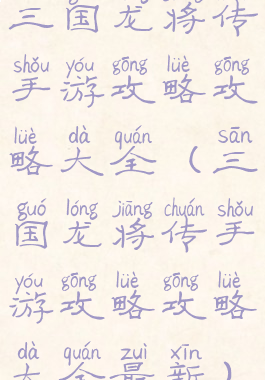 三国龙将传
shǒu yóu gōng lüè gōng
手游攻略攻
lüè dà quán sān
略大全（三
guó lóng jiāng chuán shǒu
国龙将传手
yóu gōng lüè gōng lüè
游攻略攻略
dà quán zuì xīn
大全最新）